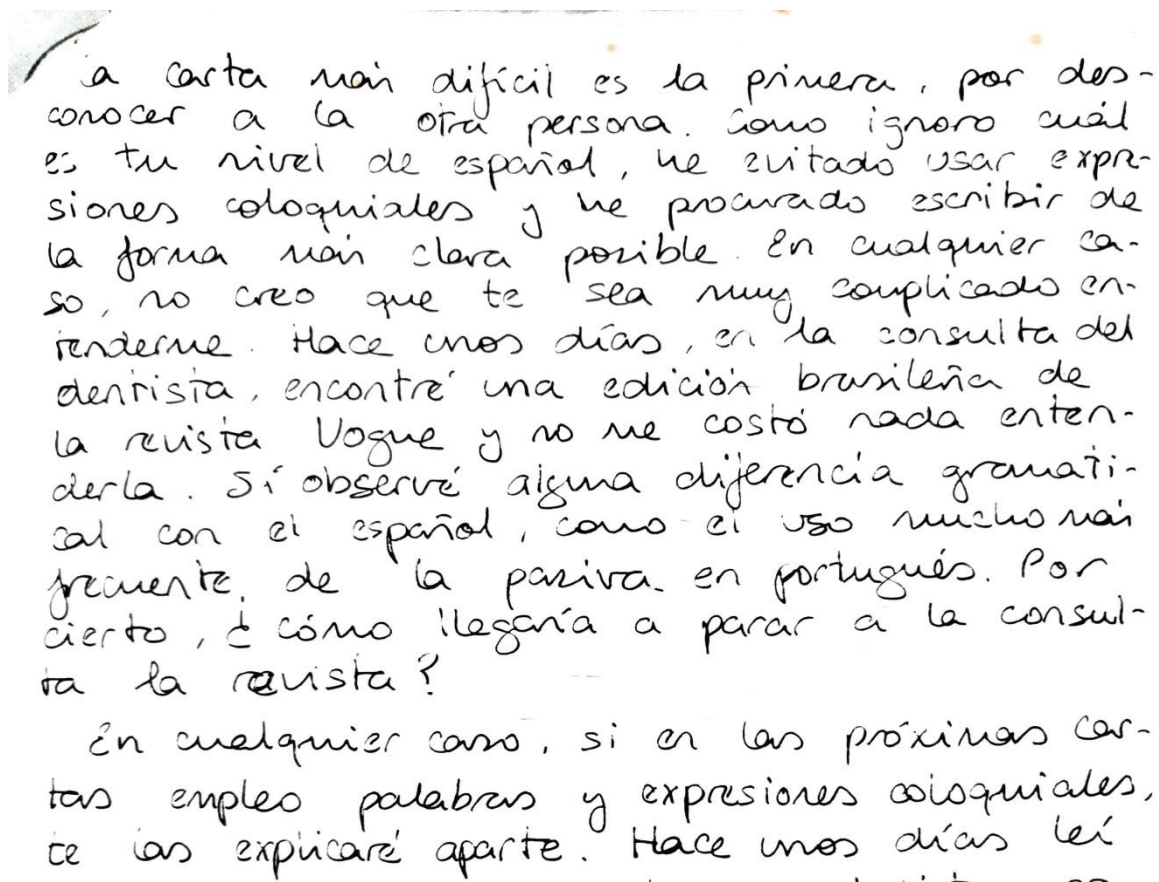 a carta más difícil es la primera, por des-
conocer a la otra persona. Como ignoro cuál
es tu nivel de español, he evitado usar expre-
siones coloquiales y he procurado escribir de
la forma más clara posible. En cualquier ca-
so, no creo que te sea muy complicado en-
tenderme. Hace unos días, en la consulta del
dentista, encontré una edición brasileña de
la revista Vogue y no me costó nada enten-
derla. Sí observé alguna diferencia gramati-
cal con el español, como el uso mucho más
frecuente, de la pasiva en portugués. Por
cierto, ¿cómo llegaría a parar a la consul-
ta la revista?
En cualquier caso, si en las próximas car-
tas empleo palabras y expresiones coloquiales,
te las explicaré aparte. Hace unos días leí